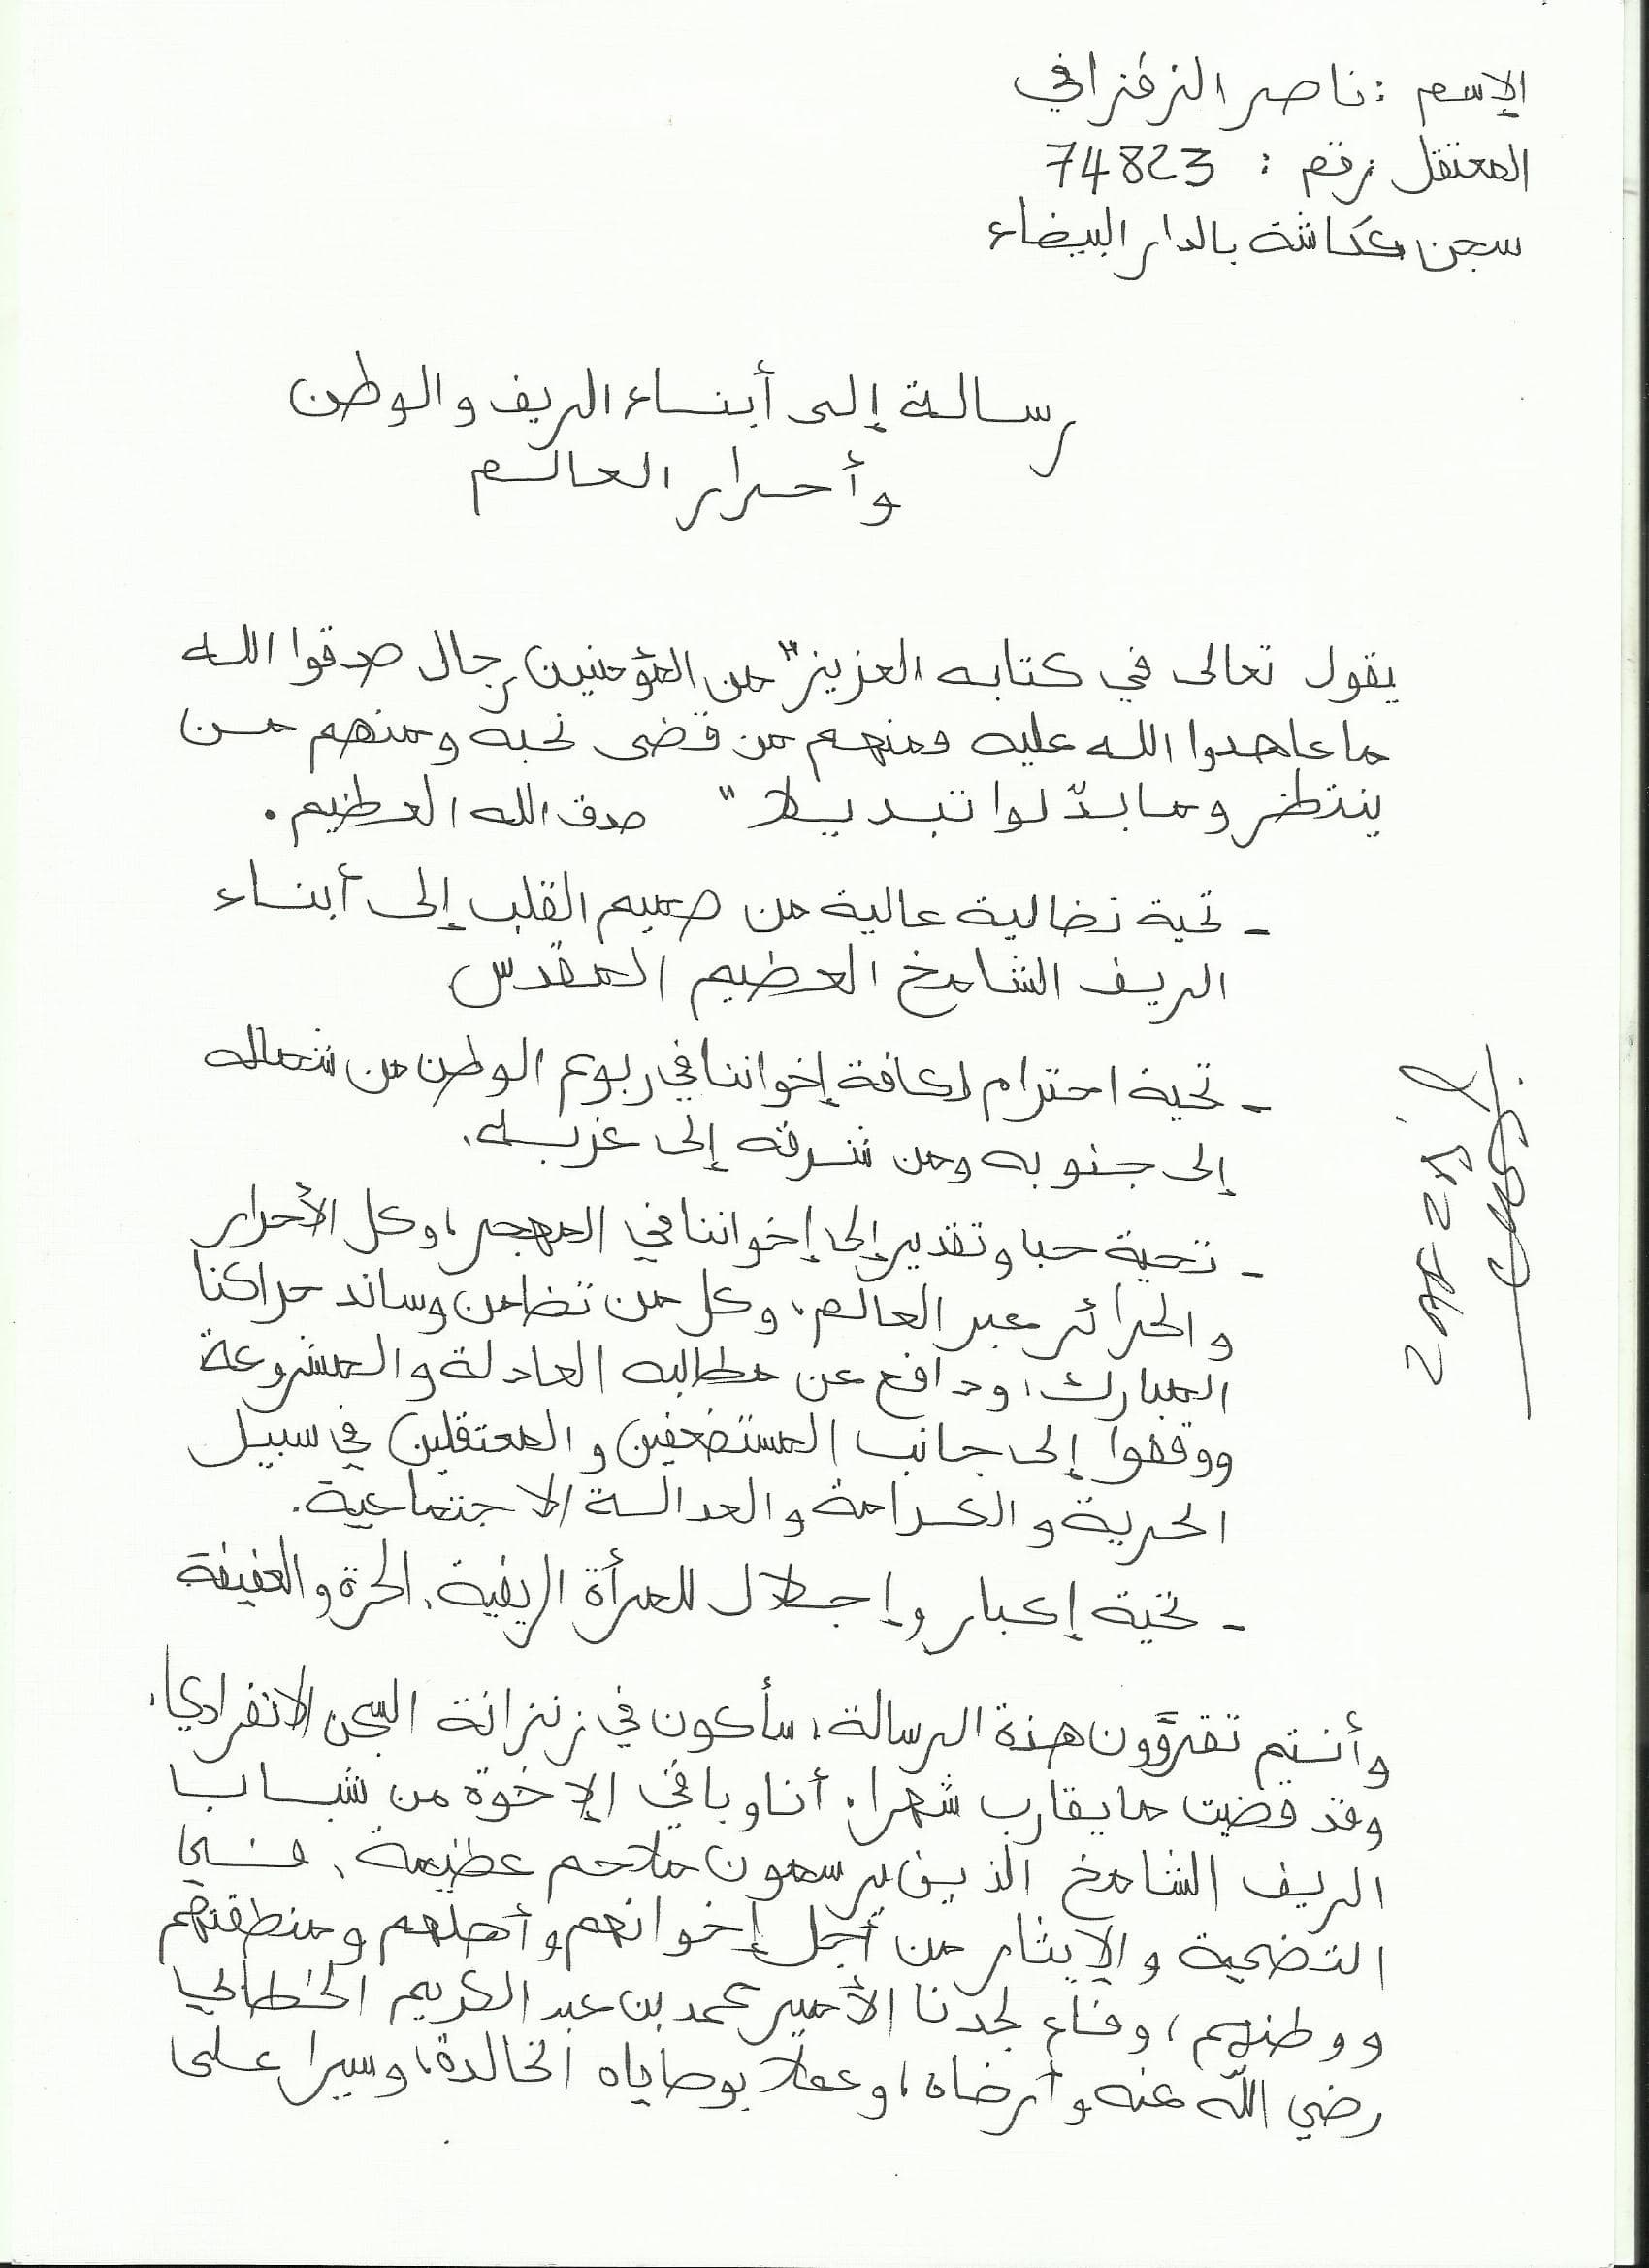 الإسم : ناصر الزفزافي
المعتقل رقم : 74823
سجن عكاشة بالدار البيضاء
رسالة إلى أبناء الريف والوطن
وأحرار العالم
يقول تعالى في كتابه العزيز "من المؤمنين رجال صدقوا الله
ما عاهدوا الله عليه فمنهم من قضى نحبه ومنهم من
ينتظر وما بدّلوا تبديلا" صدق الله العظيم.
- تحية نضالية عالية من صميم القلب إلى أبناء
الريف الشامخ العظيم المقدس
- تحية احترام لكافة إخواننا في ربوع الوطن من شماله
إلى جنوبه ومن شرقه إلى غربه.
- تحية حبا وتقدير إلى إخواننا في المهجر، وكل الأحرار
والحرائر عبر العالم، وكل من تضامن وساند حراكنا
المبارك، ودافع عن مطالبه العادلة والمشروعة
ووقفوا إلى جانب المستضعفين والمعتقلين في سبيل
الحرية والكرامة والعدالة الاجتماعية.
- تحية إكبار وإجلال للمرأة الريفية، الحرة والعفيفة
وأنتم تقرؤون هذه الرسالة، سأكون في زنزانة السجن الانفرادي،
وقد قضيت ما يقارب شهرا، أنا وباقي الإخوة من شباب
الريف الشامخ الذين يرسمون ملاحم عظيمة، في
التضحية والإيثار من أجل إخوانهم وأهلهم ومنطقتهم
ووطنهم، وفاء لجدنا الأمير محمد بن عبد الكريم الخطابي
رضي الله عنه وأرضاه، وعملا بوصاياه الخالدة، وسيرا على